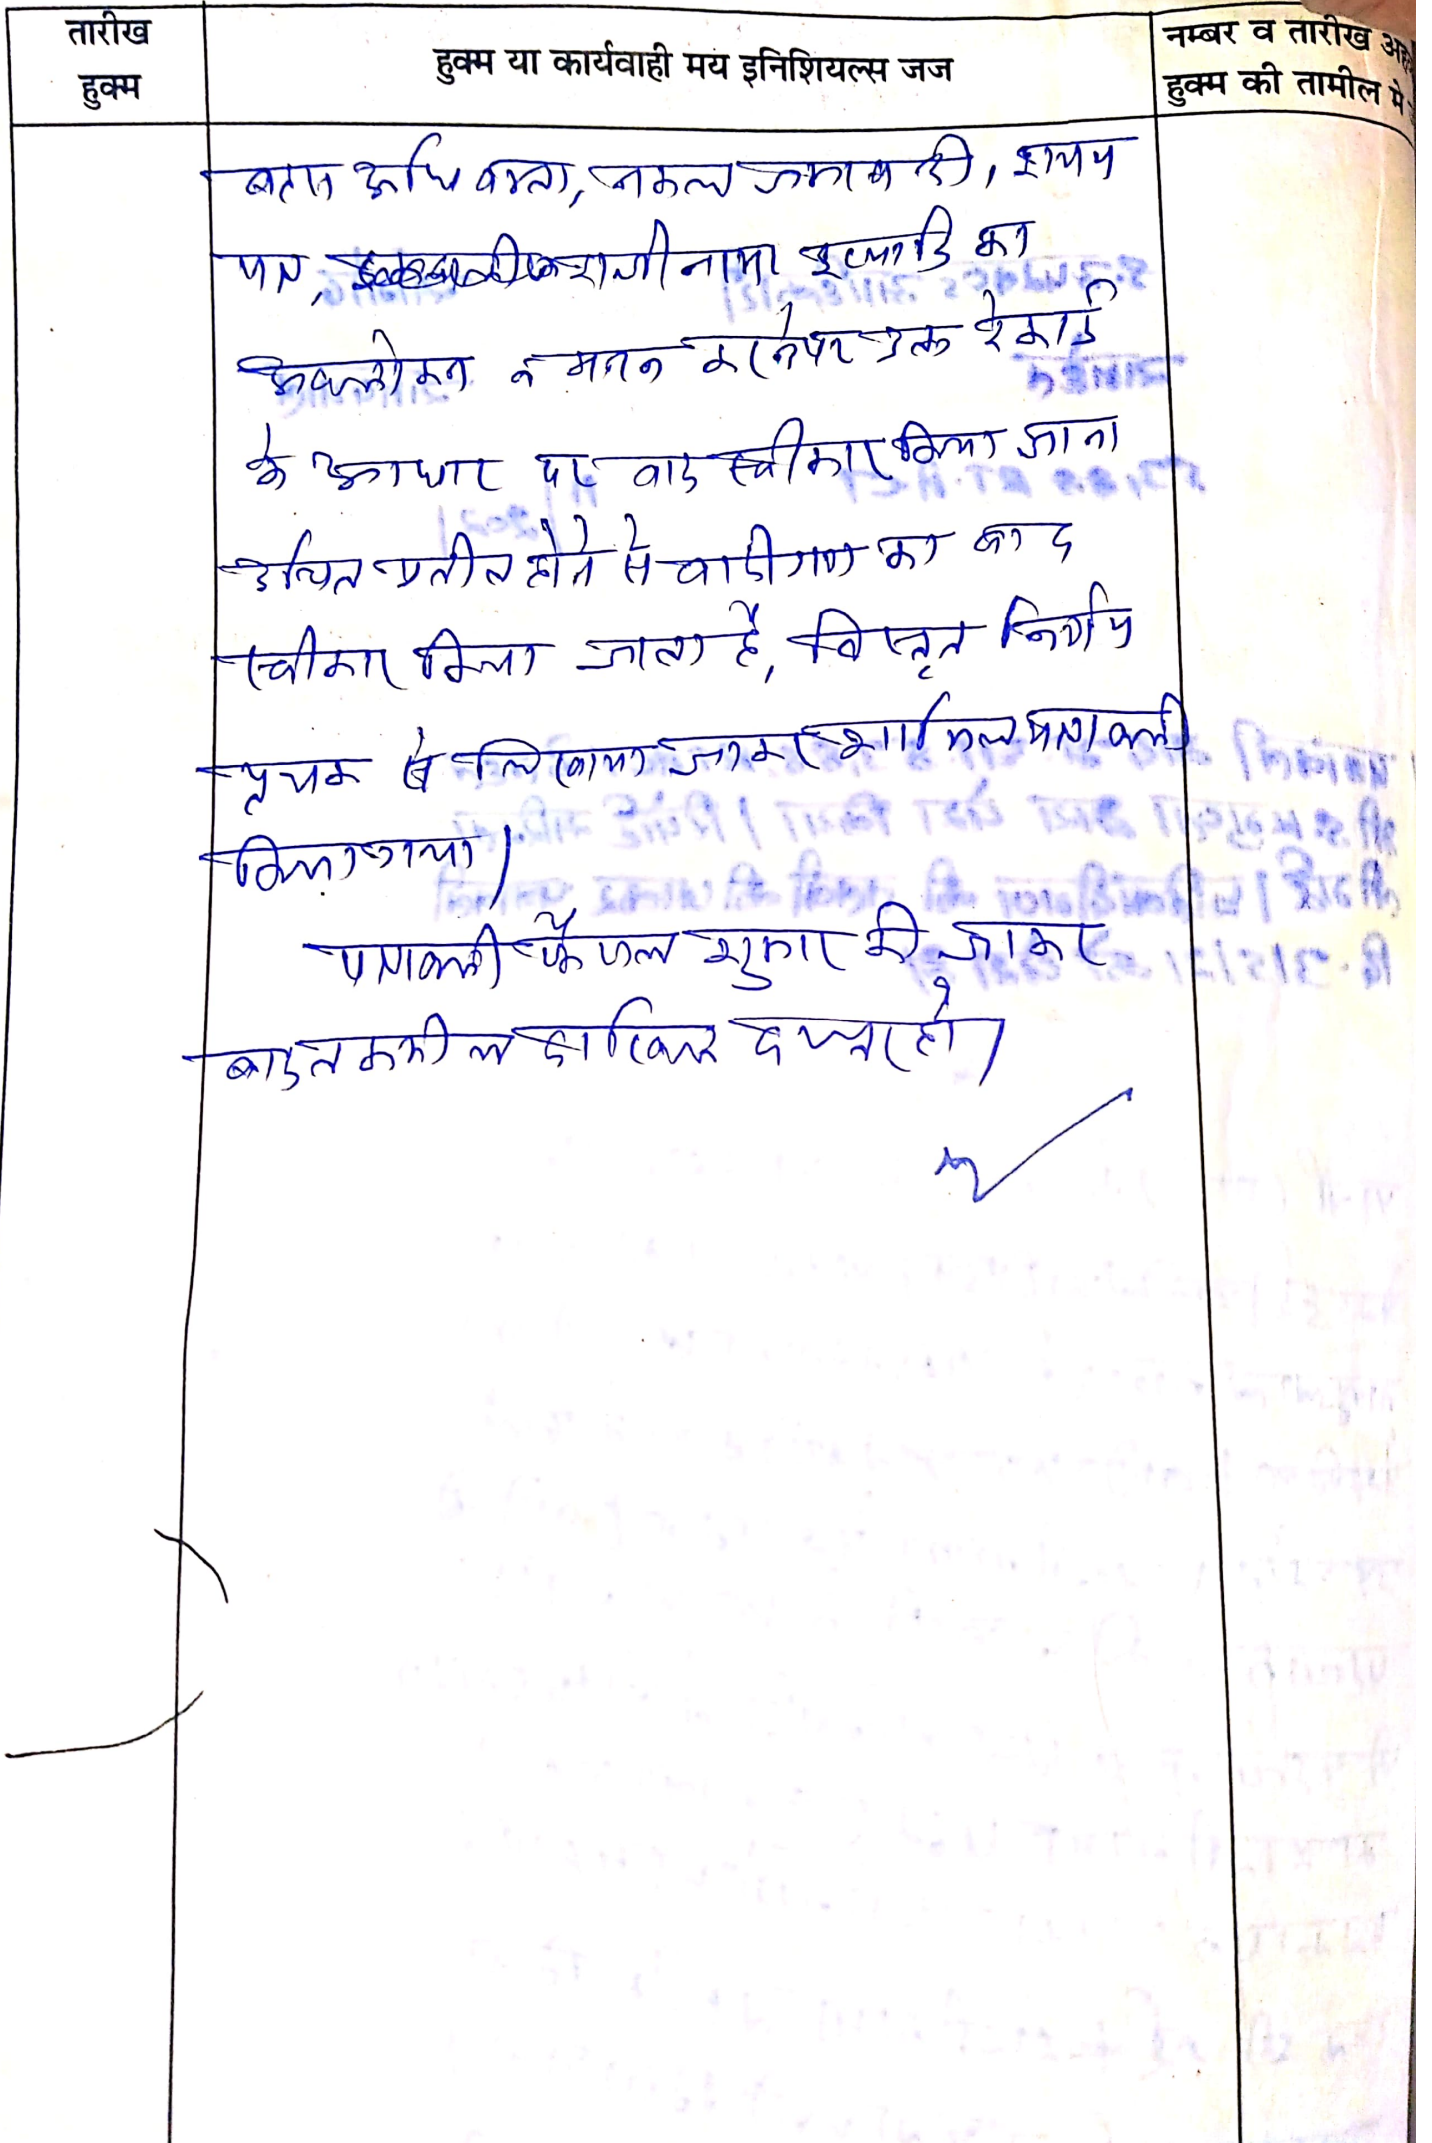 तारीख
हुक्म
हुक्म या कार्यवाही मय इनिशियल्स जज
नम्बर व तारीख
हुक्म की तामील मे
बहस अधिवक्ता, नकल जमाबन्दी, शपथ
पत्र, राजीनामा इत्यादि का
अवलोकन व मनन करने पर उक्त रेकार्ड
के आधार पर वाद स्वीकार किया जाना
उचित प्रतीत होने से वादीगण का वाद
स्वीकार किया जाता है, विस्तृत निर्णय
पृथक से लिखाया जाकर शामिल पत्रावली
किया गया।
पत्रावली फैसल शुमार की जाकर
बाद तकमील दाखिल दफ्तर हो।